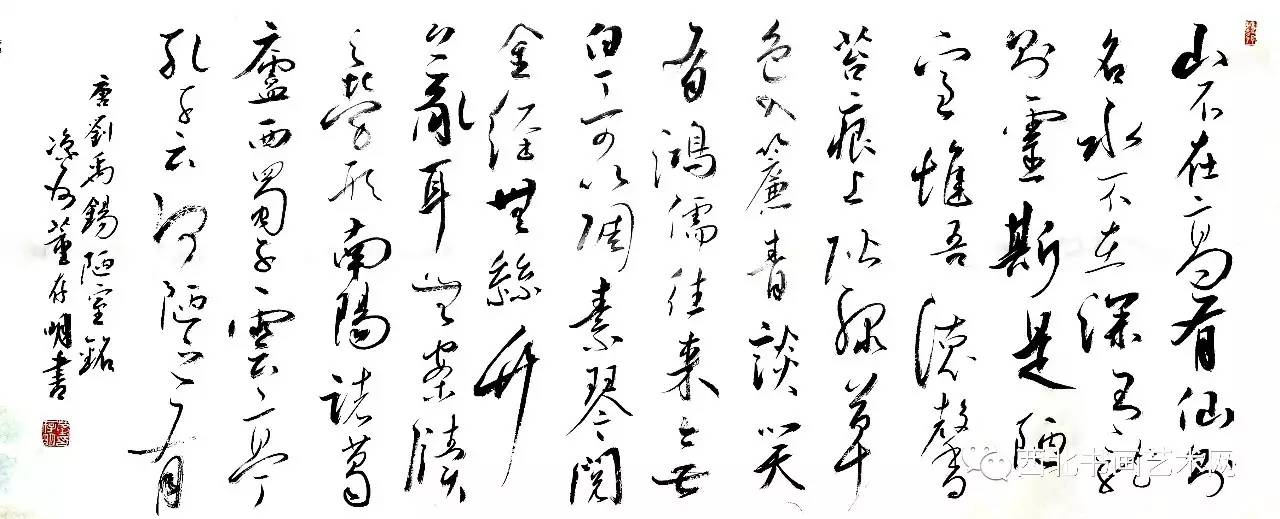 山不在高有仙则
名水不在深有龍
则靈斯是陋
室惟吾德馨
苔痕上階綠草
色入簾青談笑
有鴻儒往來無
白丁可以調素琴閱
金經無絲竹
之亂耳無案牘
之勞形南陽諸葛
廬西蜀子雲亭
孔子云何陋之有
唐劉禹錫陋室銘
涼州董存明書
西北书画艺术网